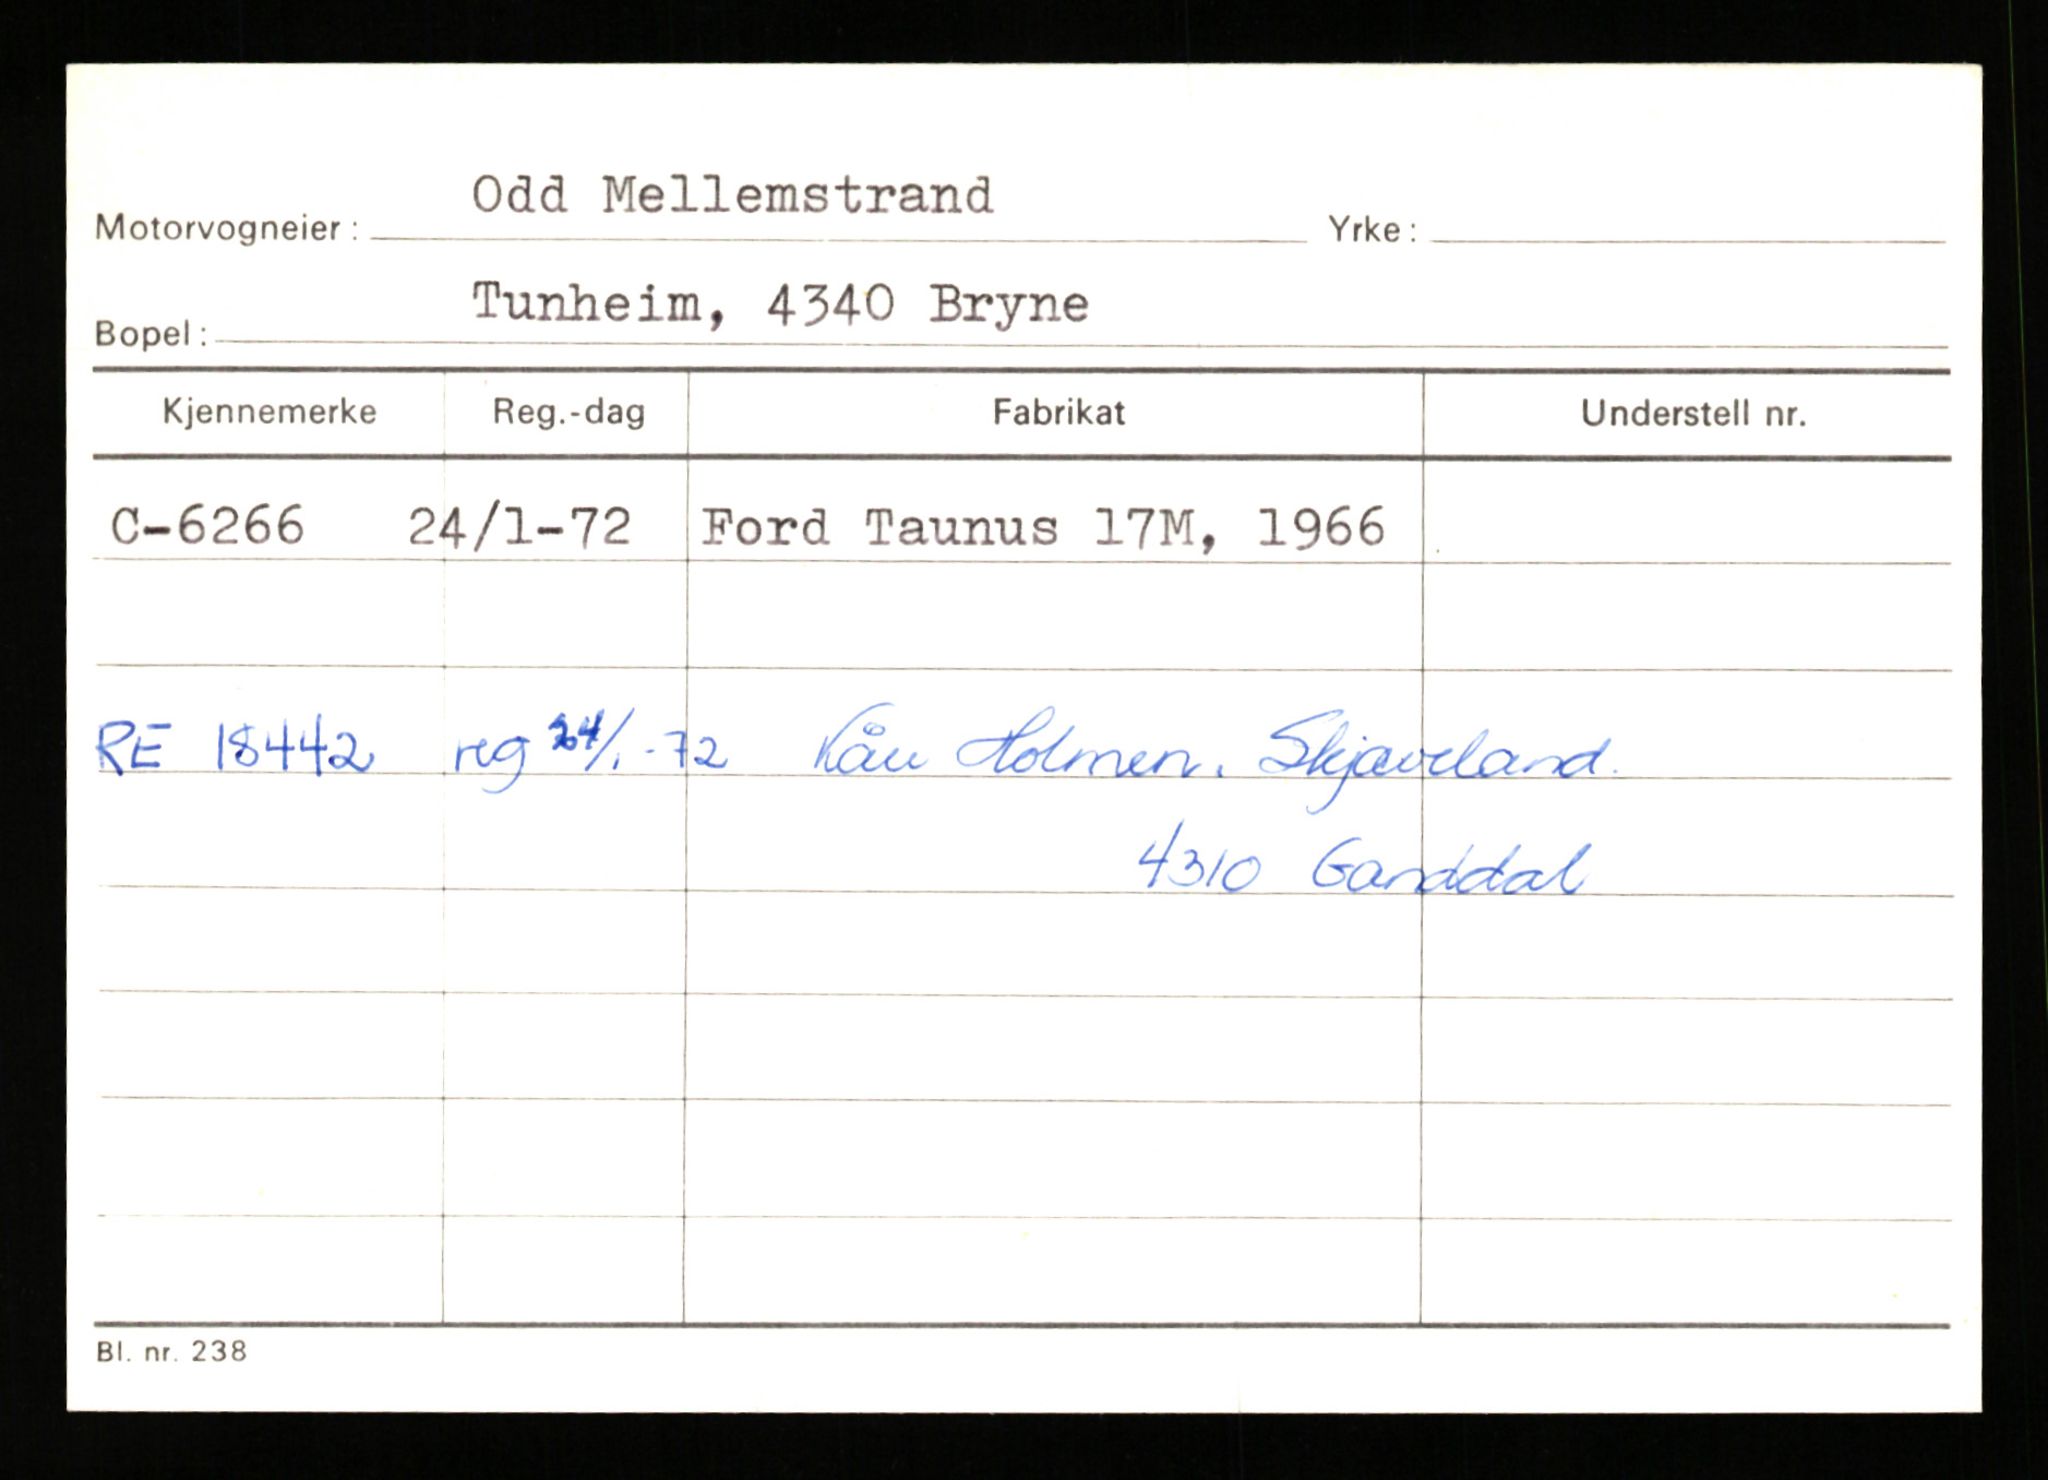 Odd Mellemstrand
Motorvogneier: Yrke:
Tunheim, 4340 Bryne
Bopel:
Kjennemerke Reg.-dag Fabrikat Understell nr.
C-6266 24/1-72 Ford Taunus 17M, 1966
RE 18442 reg 24/1-72 Kåre Holmen, Skjæveland.
4310 Ganddal
Bl. nr. 238